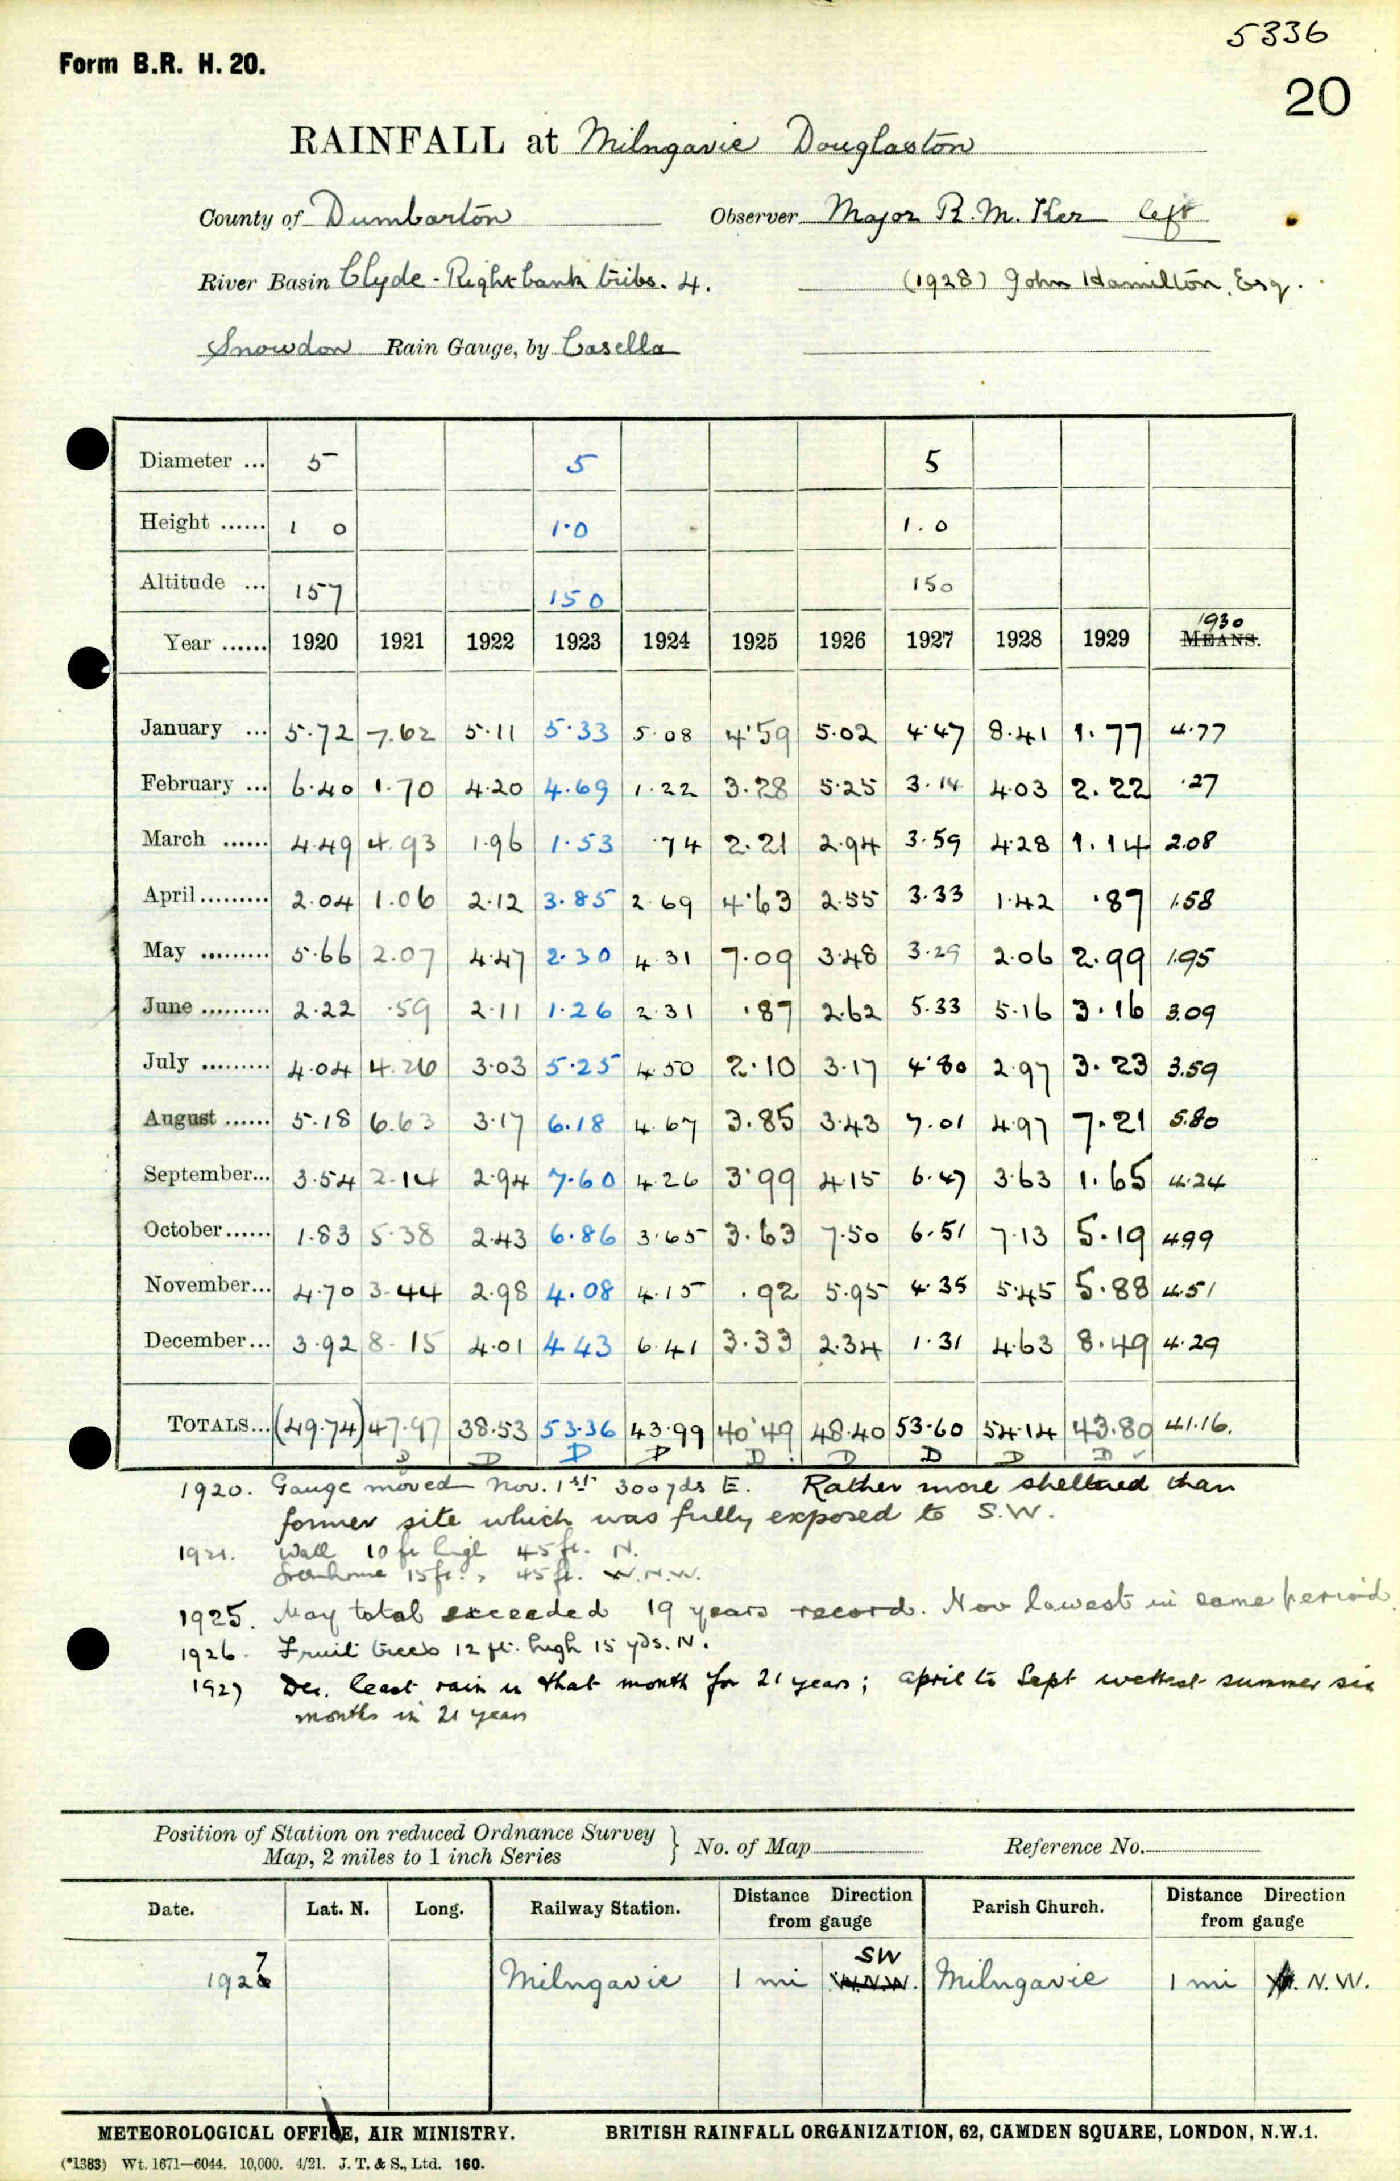 5336
Form B.R. H. 20.
20
RAINFALL at Milngavie Douglaston
County of Dumbarton Observer Major R. M. Ker left
River Basin Clyde - Right bank tribs. 4. (1928) John Hamilton, Esq.
Snowdon Rain Gauge, by Casella
Diameter ... 5 5 5
Height ...... 1 0 1·0 1.0
Altitude ... 157 150 150
Year ...... 1920 1921 1922 1923 1924 1925 1926 1927 1928 1929 1930 MEANS.
January ... 5·72 7.62 5·11 5·33 5·08 4·59 5·02 4·47 8·41 1·77 4·77
February ... 6·40 1·70 4·20 4·69 1·22 3·28 5·25 3·14 4·03 2·22 ·27
March ...... 4·49 4·93 1·96 1·53 ·74 2·21 2·94 3·59 4·28 1·14 2·08
April ......... 2·04 1·06 2·12 3·85 2·69 4·63 2·55 3·33 1·42 ·87 1·58
May ......... 5·66 2·07 4·47 2·30 4·31 7·09 3·48 3·29 2·06 2·99 1·95
June ......... 2·22 ·59 2·11 1·26 2·31 ·87 2·62 5·33 5·16 3·16 3.09
July ......... 4·04 4·26 3·03 5·25 4·50 2·10 3·17 4·80 2·97 3·23 3.59
August ...... 5·18 6·63 3·17 6·18 4·67 3·85 3·43 7·01 4·97 7·21 5.80
September... 3·54 2·14 2·94 7·60 4·26 3·99 4·15 6·47 3·63 1·65 4·24
October ...... 1·83 5·38 2·43 6·86 3·65 3·63 7·50 6·51 7·13 5·19 4.99
November... 4·70 3·44 2·98 4·08 4·15 ·92 5·95 4·35 5·45 5·88 4·51
December... 3·92 8·15 4·01 4·43 6·41 3·33 2·34 1·31 4·63 8·49 4·29
TOTALS... (49·74) 47·97 38·53 53·36 43·99 40·49 48·40 53·60 54·14 43·80 41·16.
D D D D D D D D D
1920. Gauge moved Nov. 1st 300 yds E. Rather more sheltered than
former site which was fully exposed to S.W.
1921. Wall 10 ft high 45 ft. N.
Greenhouse 15 ft. " 45 ft. W.N.W.
1925. May total exceeded 19 years record. Nov lowest in same period
1926. Fruit trees 12 ft. high 15 yds. N.
1927 Dec. least rain in that month for 21 years; April to Sept wettest summer six
months in 21 years
Position of Station on reduced Ordnance Survey
Map, 2 miles to 1 inch Series } No. of Map Reference No.
Date. Lat. N. Long. Railway Station. Distance Direction from gauge Parish Church. Distance Direction from gauge
1927 Milngavie 1 mi SW W.N.W. Milngavie 1 mi N.W.
METEOROLOGICAL OFFICE, AIR MINISTRY. BRITISH RAINFALL ORGANIZATION, 62, CAMDEN SQUARE, LONDON, N.W.1.
(*1383) Wt. 1671—6044. 10,000. 4/21. J. T. & S., Ltd. 160.